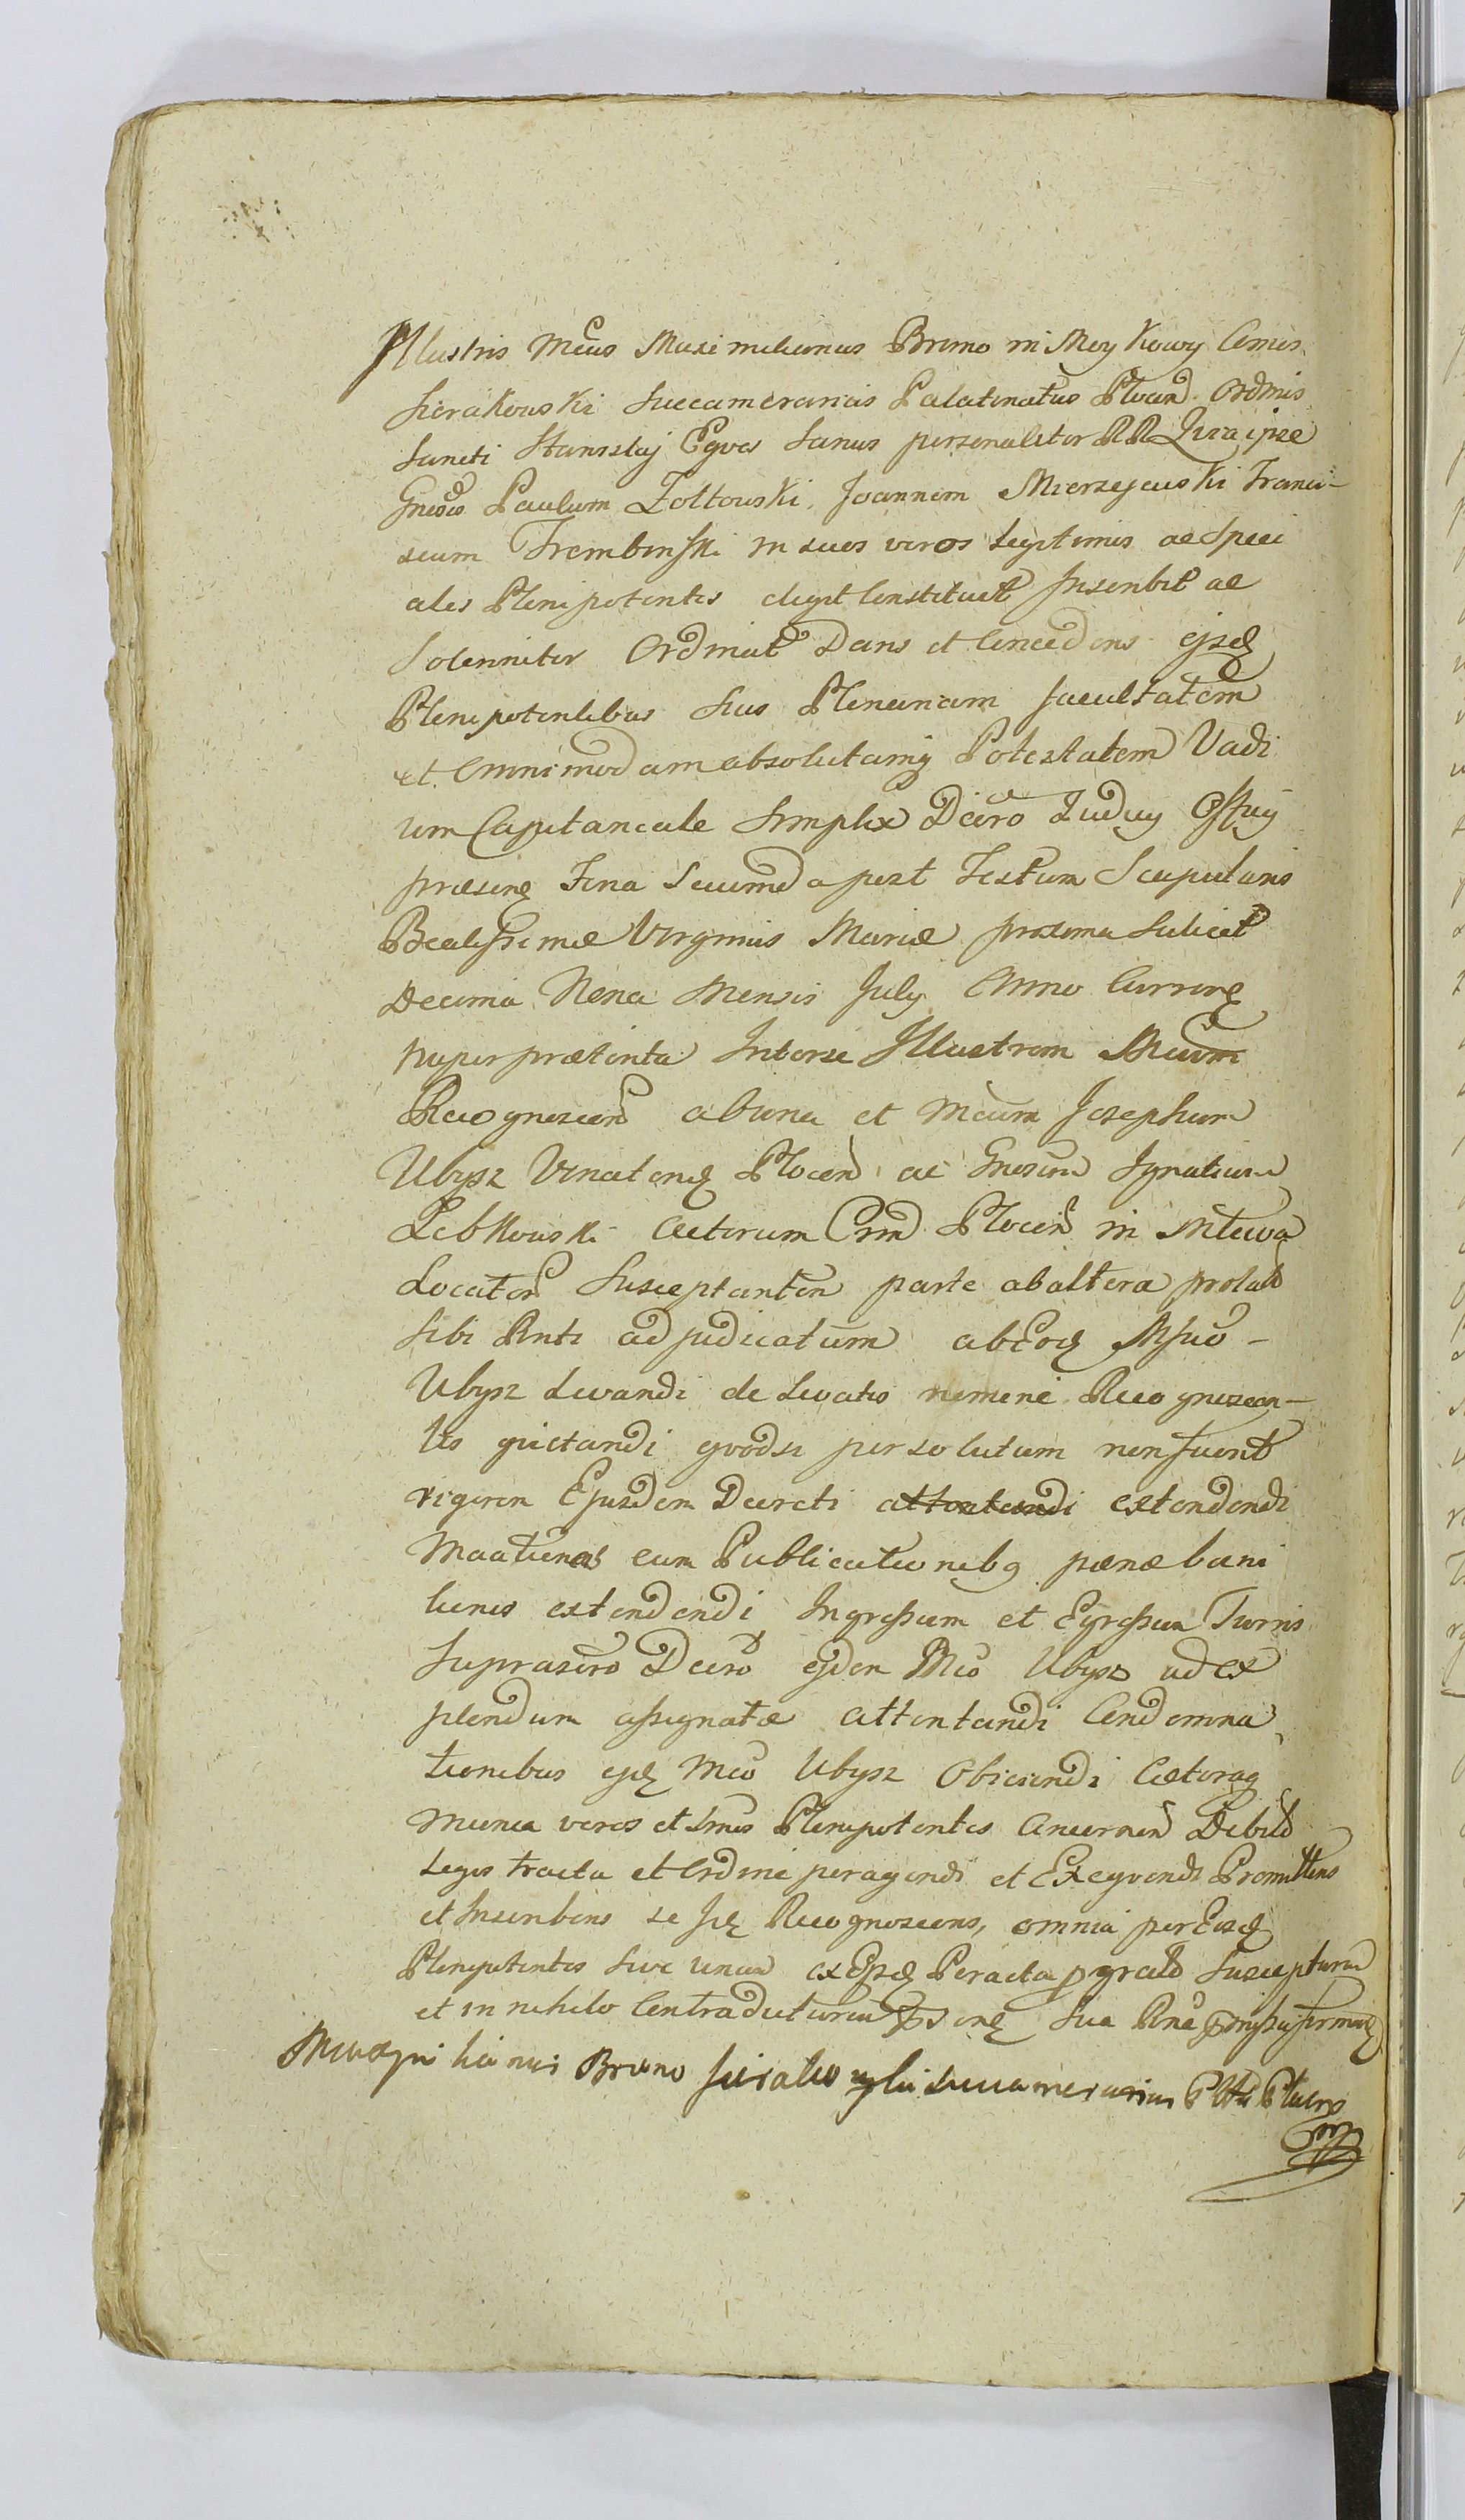 Illustris Mcus Maximilianus Bruno in Moykowy Comes
Sierakowski Succamerarius Palatinatus Plocen̄. Ordinis
Sancti Stanislaj Eqves Sanus personaliter RR Quia ipse
Gnēsos Paulum Zoltowski, Joannem Mierzejewski Franci-
scum Trembinski in suos veros legitimos ac Speci
ales Plenipotentes elegit Constituit Inscribit ac
Solenniter Ordinat Dans et Concedens ejsdȩ
Plenipotentibus Suis Plenariam facultatem
et Omnimodam absolutamq Potestatem Vadi
um Capitaneale Simplex Decro Judicij
præsenȩ Feria Secunda post Festum Scapularis
Beatissimæ Virginis Mariæ proxima Scilicet
Decima Nona Mensis July Anno Currenȩ
nuper præterita Interse Illustrem Mcum
Recognoscen̄ abuna et Mcum Josephum
Ubysz Venatorȩ Plocen̄ ac Gnosum Ignatium
Lebkowski Actorum Crm̄ Plocen̄ in Mława
Locator̄ Susceptantem parte abaltera prolat
Sibi Rnti adjudicatum abEodȩ Mfico -
Ubysz Levandi de Levatis nomine Recognoscen-
tis quietandi qvodsi persolutum nonfuerit
rigorem Ejusdem Decreti attentandi extendendi
cum Publicationibq pænæ bani
tionis extendendi Ingressum et Egressum Turris
Suprascro Decro ejdem Mco Ubysz ad ex
plendum assignatæ attentandi Condemna
tionibus ejdȩ Mco Ubysz Obiiciendi Cæteraq
munia veros et Lmos Plenipotentes Concernen̄ Debito
Legis tractu et Ordine peragendi et Exeqvendi Promittens
et Inscribens se Recognoscens, omnia perEosdȩ
Plenipotentes Sive unum exEjsdȩ Peracta pgrato Suscepturum
et in nihilo Contradicturum
Maxymilianus Bruno Sierakowski Succamerarius Plttus Plocens
mp